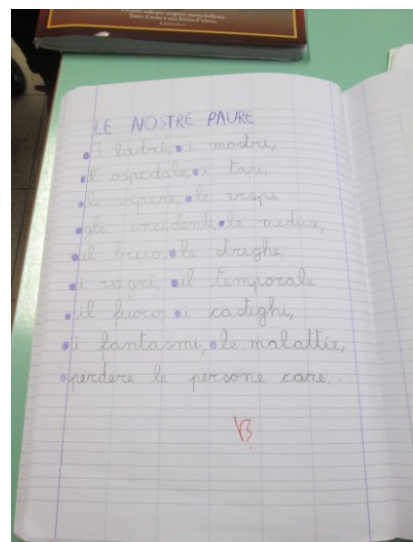 LE NOSTRE PAURE
• I ladri, • i mostri,
• l'ospedale, • i topi,
• le vipere, • le vespe
• gli incidenti, • le meduse,
• il buio, • le streghe,
• i ragni, • il temporale
• il fuoco, • i castighi,
• i fantasmi, • le malattie,
• perdere le persone care.
B